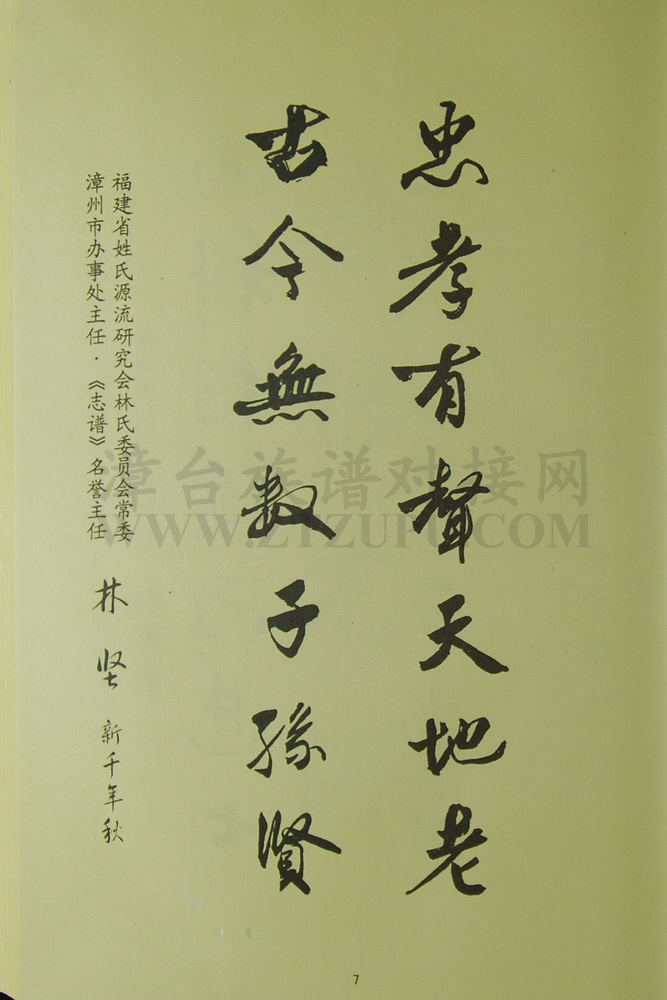 忠孝有聲天地老
古今無数子孫賢
福建省姓氏源流研究会林氏委员会常委
漳州市办事处主任·《志谱》名誉主任
林坚 新千年秋
漳台族谱对接网
WWW.ZTZUPU.COM
7